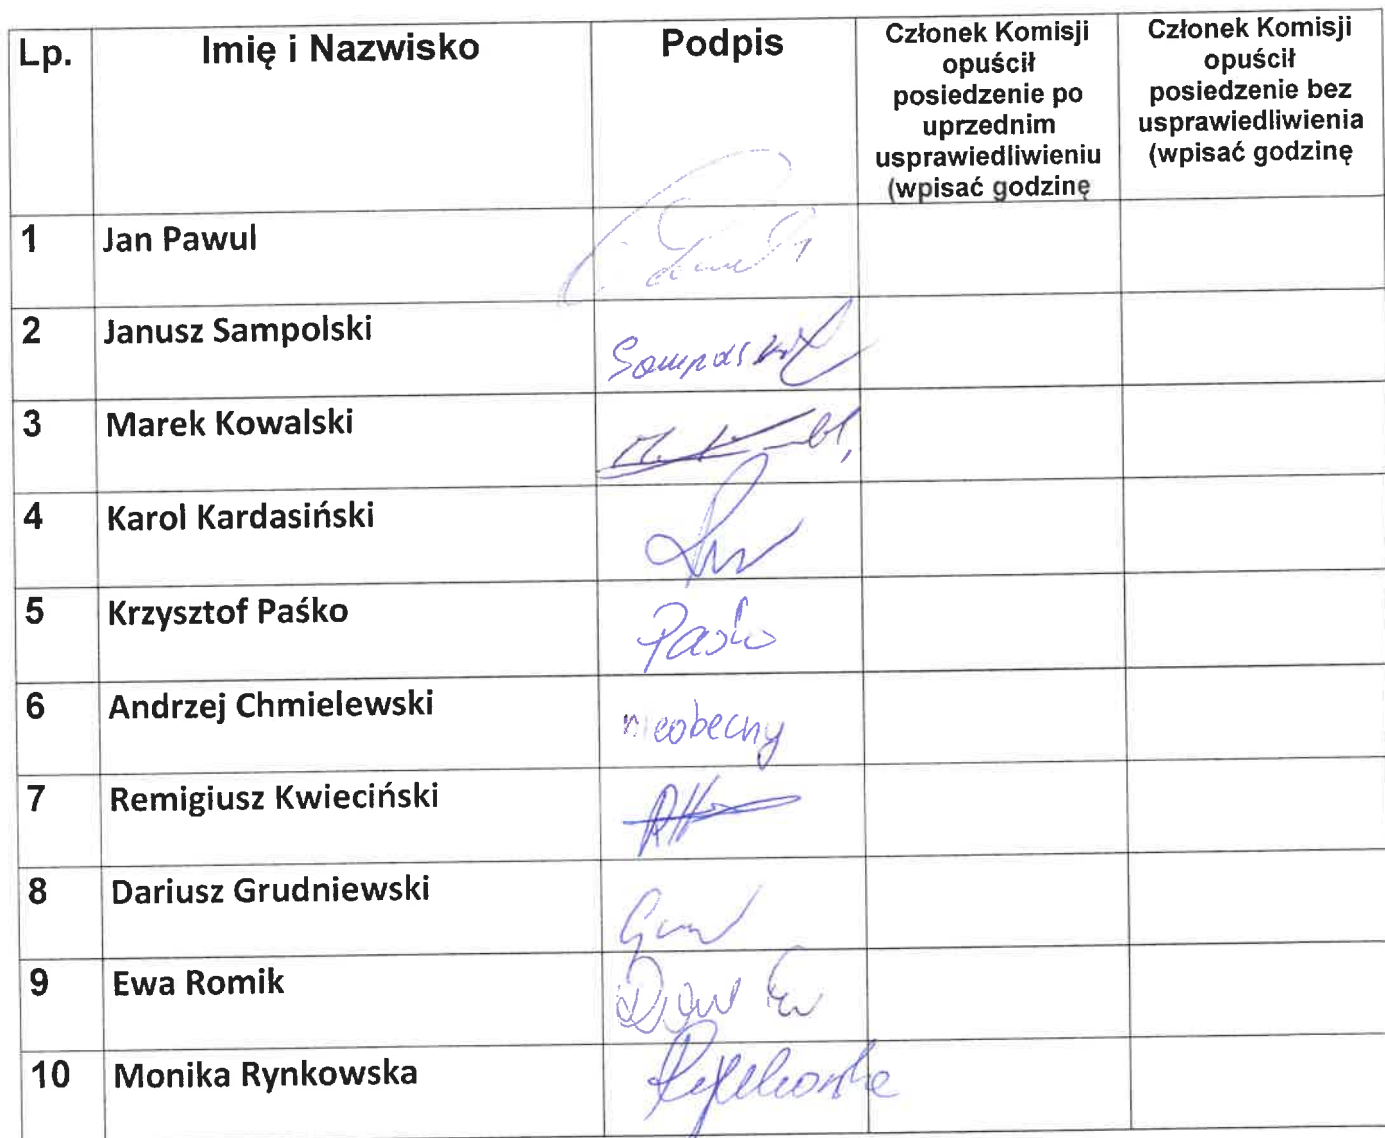 Lp.
Imię i Nazwisko
Podpis
Członek Komisji
opuścił
posiedzenie po
uprzednim
usprawiedliwieniu
(wpisać godzinę
Członek Komisji
opuścił
posiedzenie bez
usprawiedliwienia
(wpisać godzinę
1 Jan Pawul
2 Janusz Sampolski Sampolski
3 Marek Kowalski
4 Karol Kardasiński
5 Krzysztof Paśko Paśko
6 Andrzej Chmielewski nieobecny
7 Remigiusz Kwieciński
8 Dariusz Grudniewski
9 Ewa Romik
10 Monika Rynkowska